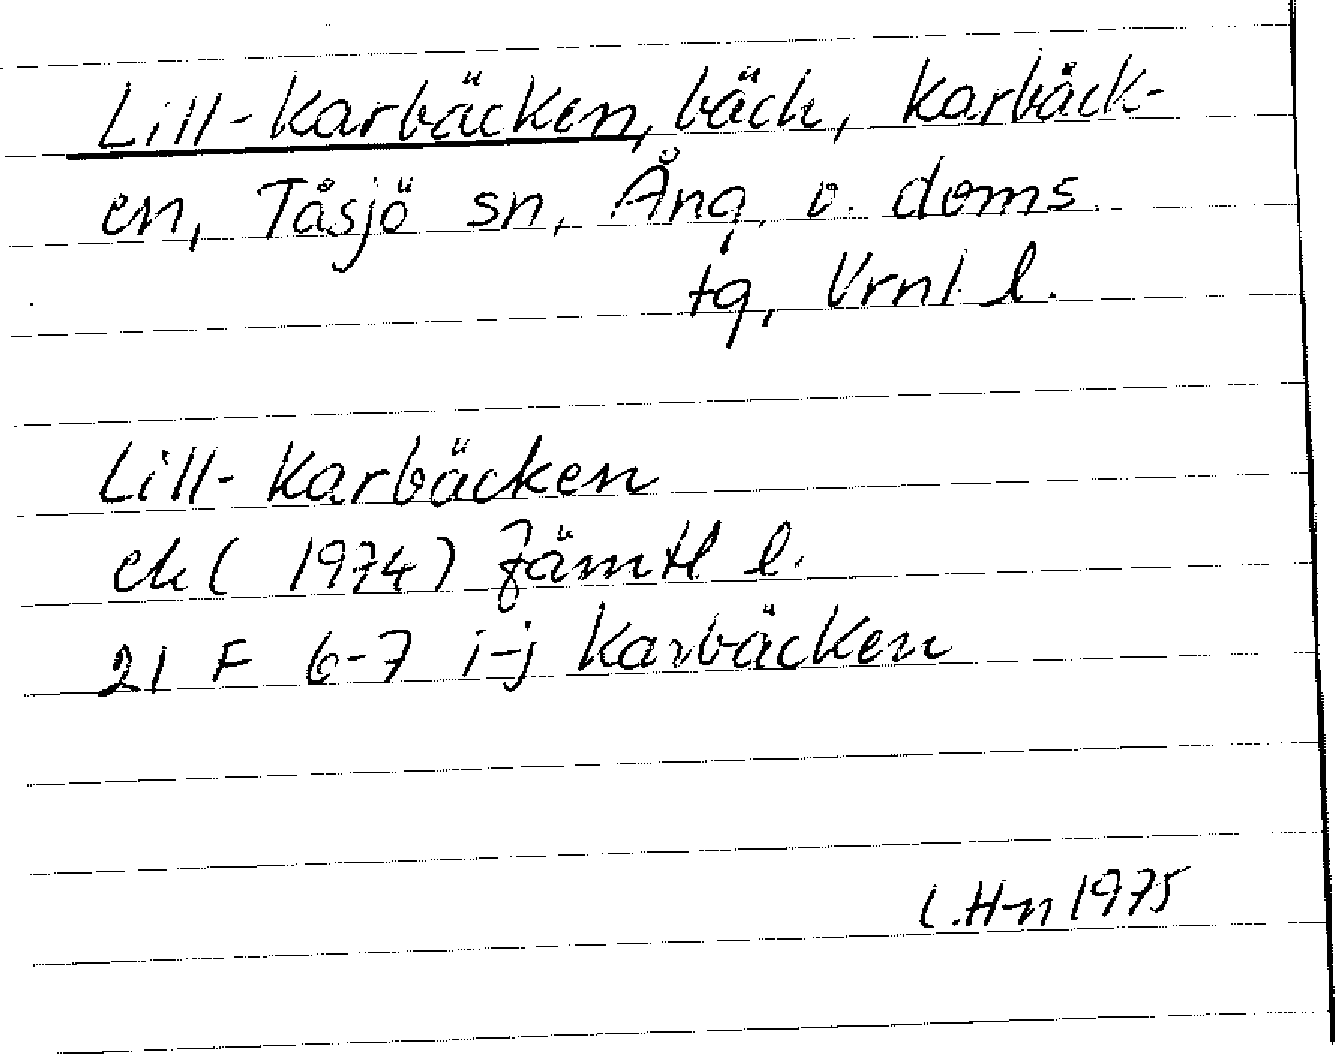 Lill-Karbäcken, bäck, Karbäck-
en, Tåsjö sn, Ång. v. doms.
tg, Vrnl. l.
Lill-Karbäcken
ek (1974) Jämtl l.
21 F 6-7 i-j Karbäcken
L.H-n 1975